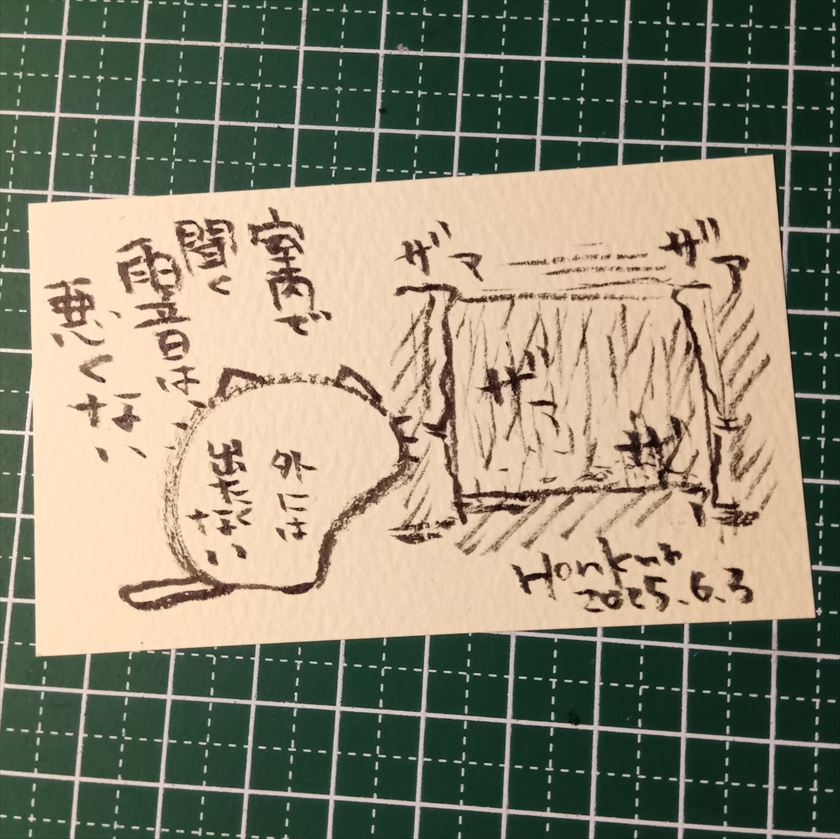 室内で
聞く
雨音は、
悪くない
外には
出たく
ない
ザァ
ザァ
ザァ
ザァ
Honkuma
2025.6.3